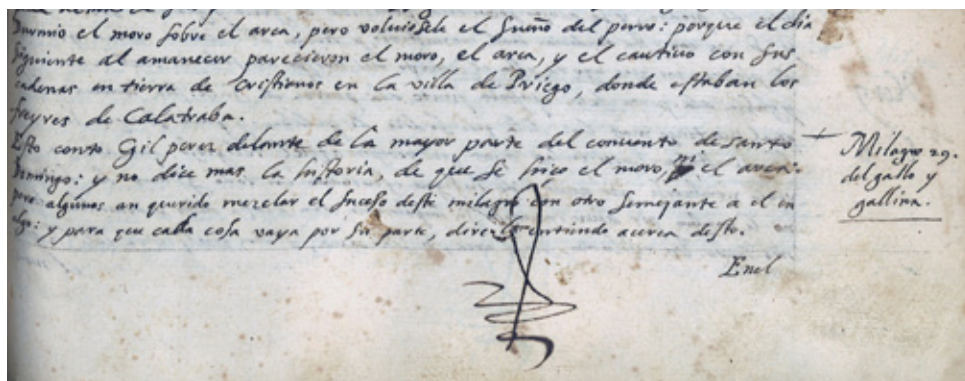 durmio el moro sobre el arca, pero voluiosele el sueño del perro: porque el dia
siguiente al amanecer parecieron el moro, el arca, y el cautiuo con sus
cadenas en tierra de cristianos en la villa de Priego, donde estaban los
freyres de Calatraba.
Esto conto Gil perez delante de la mayor parte del conuento de santo
Domingo: y no dice mas la historia, de que se hiço el moro, ni el arca.
pero algunos an querido mezclar el suceso deste milagro con otro semejante a el en
algo: y para que cada cosa vaya por su parte, dire lo entiendo acerca desto.
Enel
Milagro 29.
del gallo y
gallina.